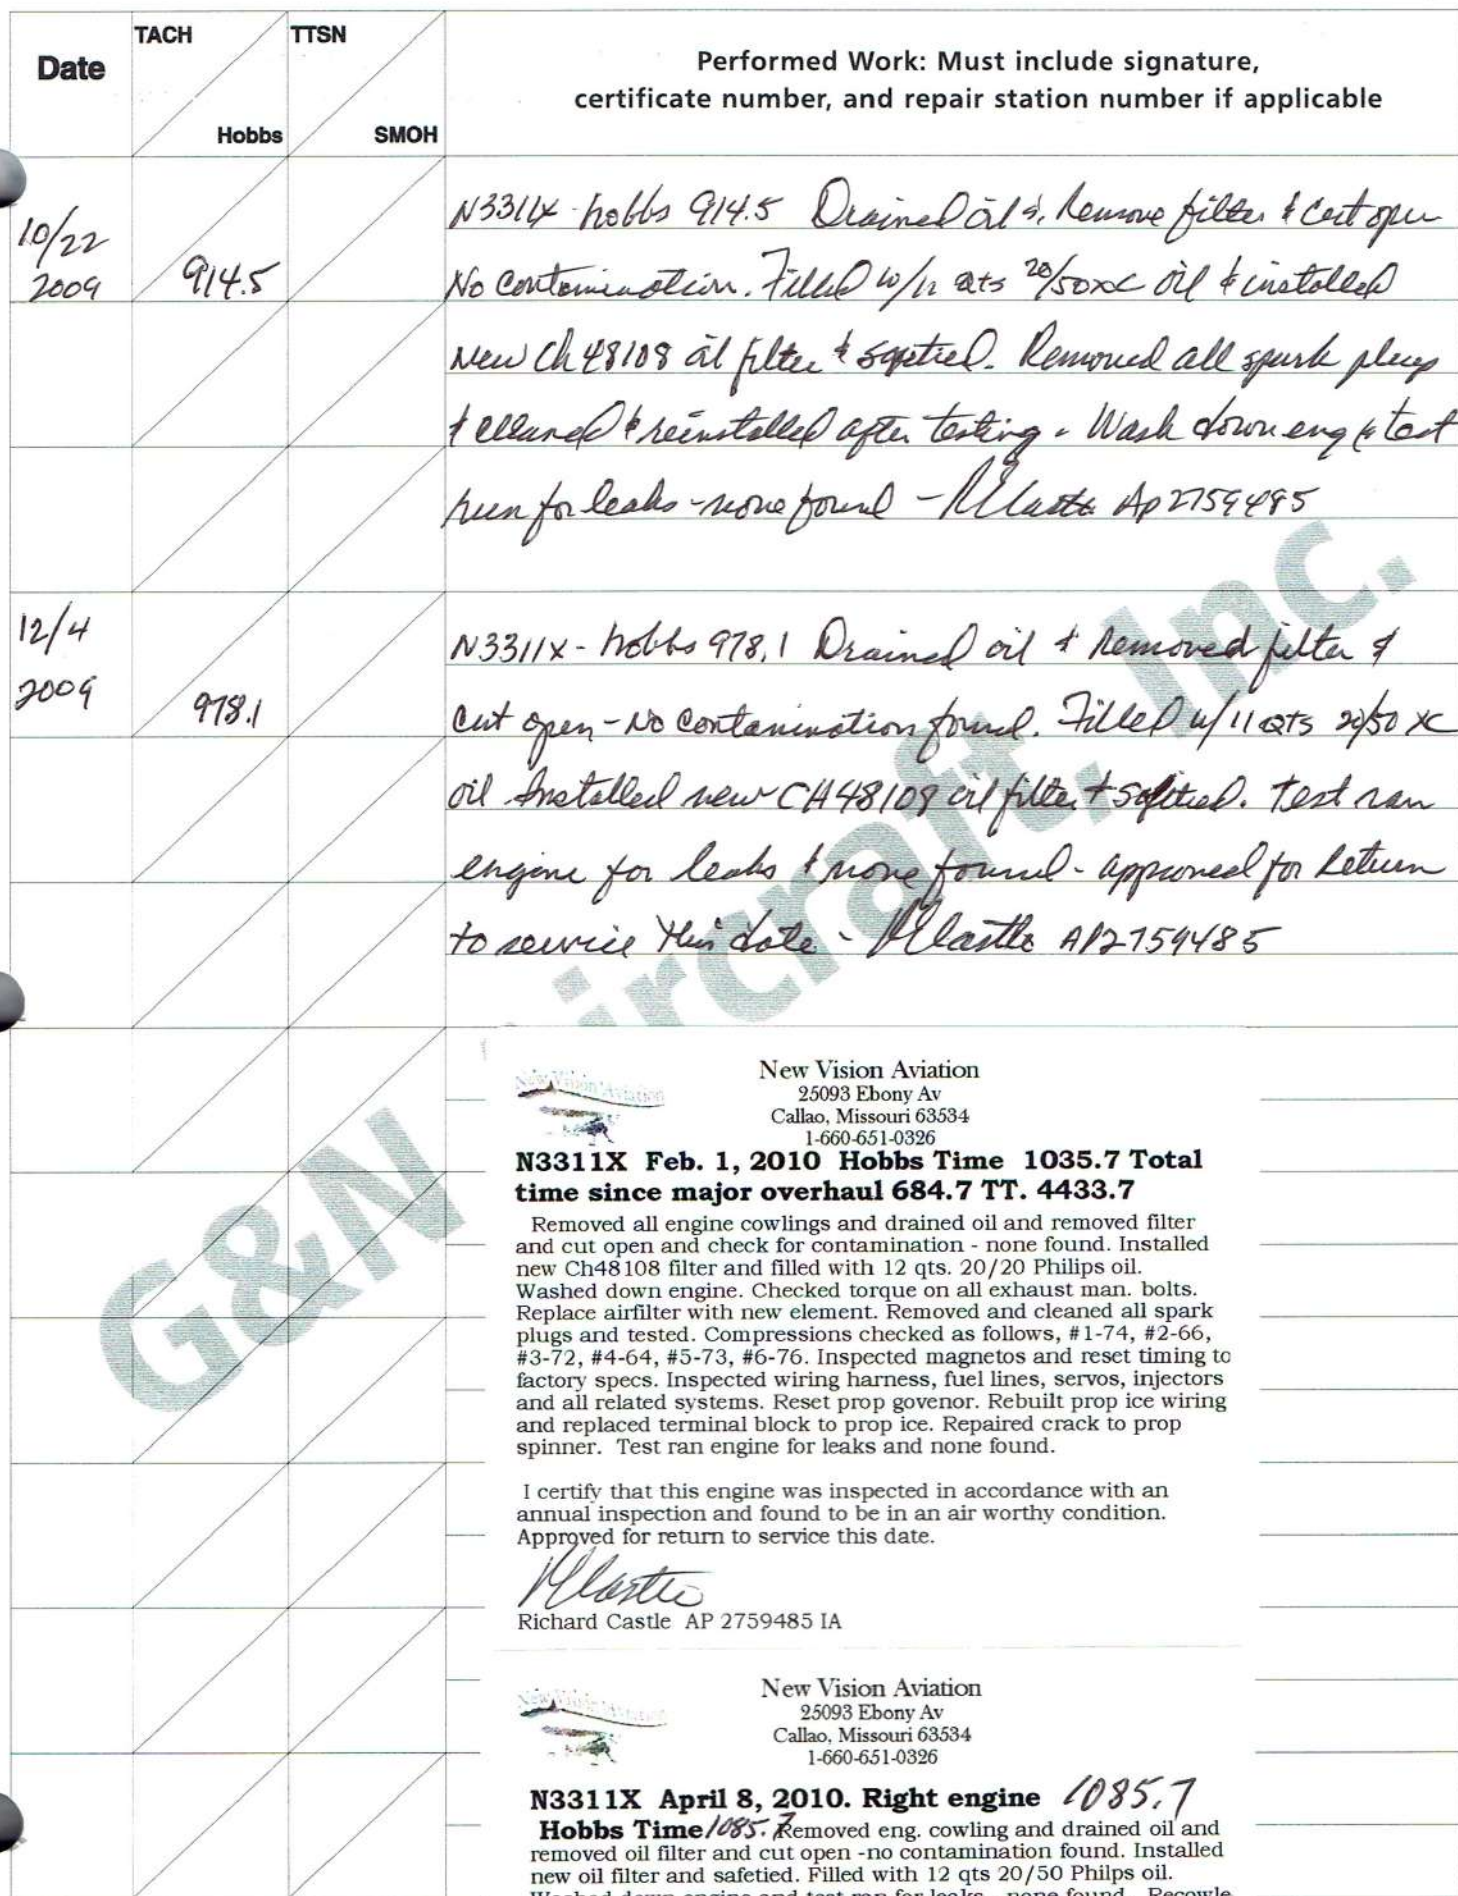 Date
TACH
Hobbs
TTSN
SMOH
Performed Work: Must include signature,
certificate number, and repair station number if applicable
10/22
2009
914.5
N3311X - hobbs 914.5 Drained oil &, Remove filter & cut open
No contamination. Filled w/11 Qts 20/50XC oil & installed
New Ch 48108 oil filter & saftied. Removed all spark plugs
& cleaned & reinstalled after testing. Wash down eng & test
run for leaks - none found - AP 2759485
12/4
2009
978.1
N3311X - hobbs 978.1 Drained oil & Removed filter &
cut open - No contamination found. Filled w/ 11 QTS 20/50 XC
oil Installed new CH48108 oil filter & saftied. Test ran
engine for leaks & none found - approved for Return
to service this date - AP2759485
G&N Aircraft, Inc.
New Vision Aviation
New Vision Aviation
25093 Ebony Av
Callao, Missouri 63534
1-660-651-0326
N3311X Feb. 1, 2010 Hobbs Time 1035.7 Total
time since major overhaul 684.7 TT. 4433.7
Removed all engine cowlings and drained oil and removed filter
and cut open and check for contamination - none found. Installed
new Ch48108 filter and filled with 12 qts. 20/20 Philips oil.
Washed down engine. Checked torque on all exhaust man. bolts.
Replace airfilter with new element. Removed and cleaned all spark
plugs and tested. Compressions checked as follows, #1-74, #2-66,
#3-72, #4-64, #5-73, #6-76. Inspected magnetos and reset timing to
factory specs. Inspected wiring harness, fuel lines, servos, injectors
and all related systems. Reset prop govenor. Rebuilt prop ice wiring
and replaced terminal block to prop ice. Repaired crack to prop
spinner. Test ran engine for leaks and none found.
I certify that this engine was inspected in accordance with an
annual inspection and found to be in an air worthy condition.
Approved for return to service this date.
Richard Castle AP 2759485 IA
New Vision Aviation
New Vision Aviation
25093 Ebony Av
Callao, Missouri 63534
1-660-651-0326
N3311X April 8, 2010. Right engine 1085.7
Hobbs Time 1085.7 Removed eng. cowling and drained oil and
removed oil filter and cut open -no contamination found. Installed
new oil filter and safetied. Filled with 12 qts 20/50 Philps oil.
Washed down engine and test ran for leaks - none found. Recowle